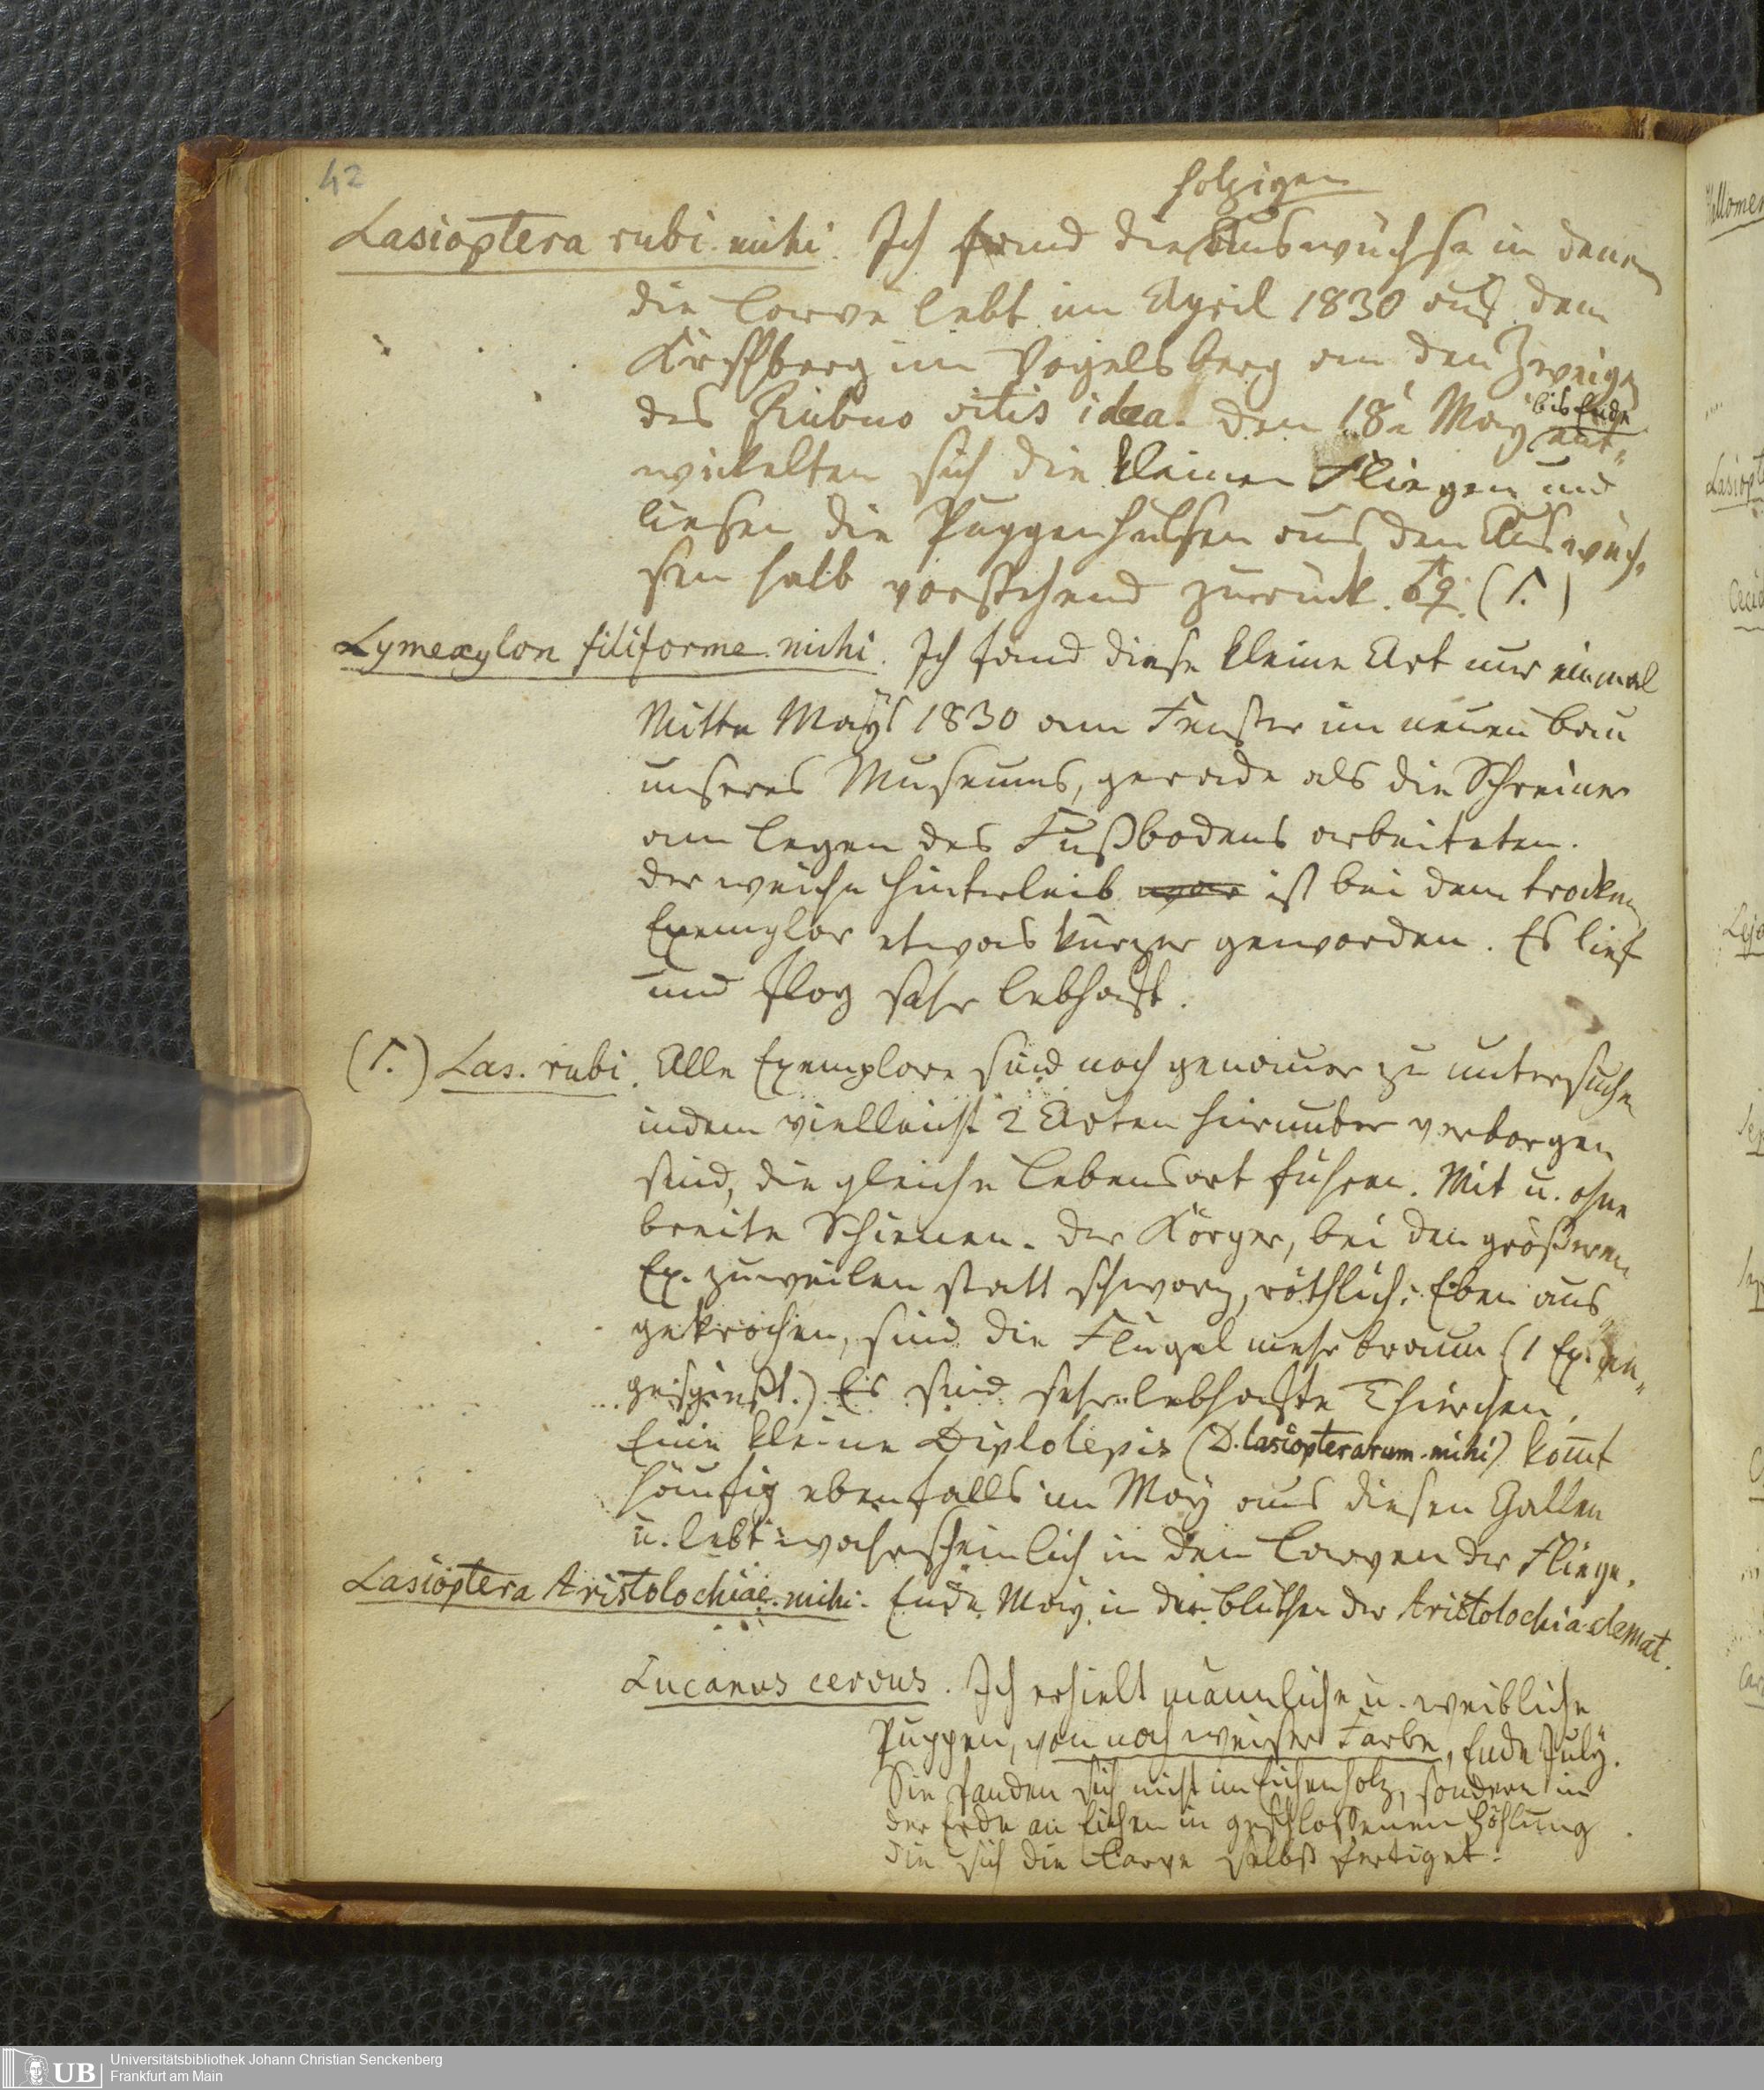 42
holzigen
Lasioptera rubi. mihi. Ich fand die Auswüchse in denen
die Larve lebt im April 1830 auf dem
im Vogelsberg an den Zweigen
des Rubus vitis idaea. den 18n May bis Ende ent-
wickelten sich die kleinen Fliegen und
ließen die Puppenhülsen aus den Auswüch-
sen halb vorstehend zurück. ♂♀. (1.)
Lymexylon filiforme. mihi. Ich fand diese kleine Art nur einmal
Mitte Mays 1830 am Fenster im neuen Bau
unseres Museums, gerade als die Schreiner
am Legen des Fußbodens arbeiteten.
der weiche Hinterleib ist bei dem trocken
Exemplar etwas kürzer geworden. Es lief
und flog sehr lebhaft.
(1.) Las. rubi. Alle Exemplare sind noch genauer zu untersuchen
indem vielleicht 2 Arten hierunter verborgen
sind, die gleiche Lebensart führen. Mit u. ohne
breite Schienen. Der Körper, bei den größeren
Ex. zuweilen statt schwarz, röthlich. Eben aus
gekrochen, sind die Flügel mehr braun (1 Ex. an-
gespießt.) Es sind sehr lebhafte Thierchen.
Eine kleine Diplolepis (D. lasiopterarum. mihi) kom̄t
häufig ebenfalls im May aus diesen Gallen
u. lebt wahrscheinlich in den Larven der Fliege.
Lasioptera Aristolochiae. mihi. Ende May in den Blüthen der Aristolochia clemat.
Lucanus cervus. Ich erhielt männliche u. weibliche
Puppen, von noch weißer Farbe, Ende July.
Sie fanden sich nicht im Eichenholz, sondern in
der Erde an Eichen in geschlossenen Höhlung
die sich die Larve selbst fertiget.
Lasiopt
UB
Universitätsbibliothek Johann Christian Senckenberg
Frankfurt am Main